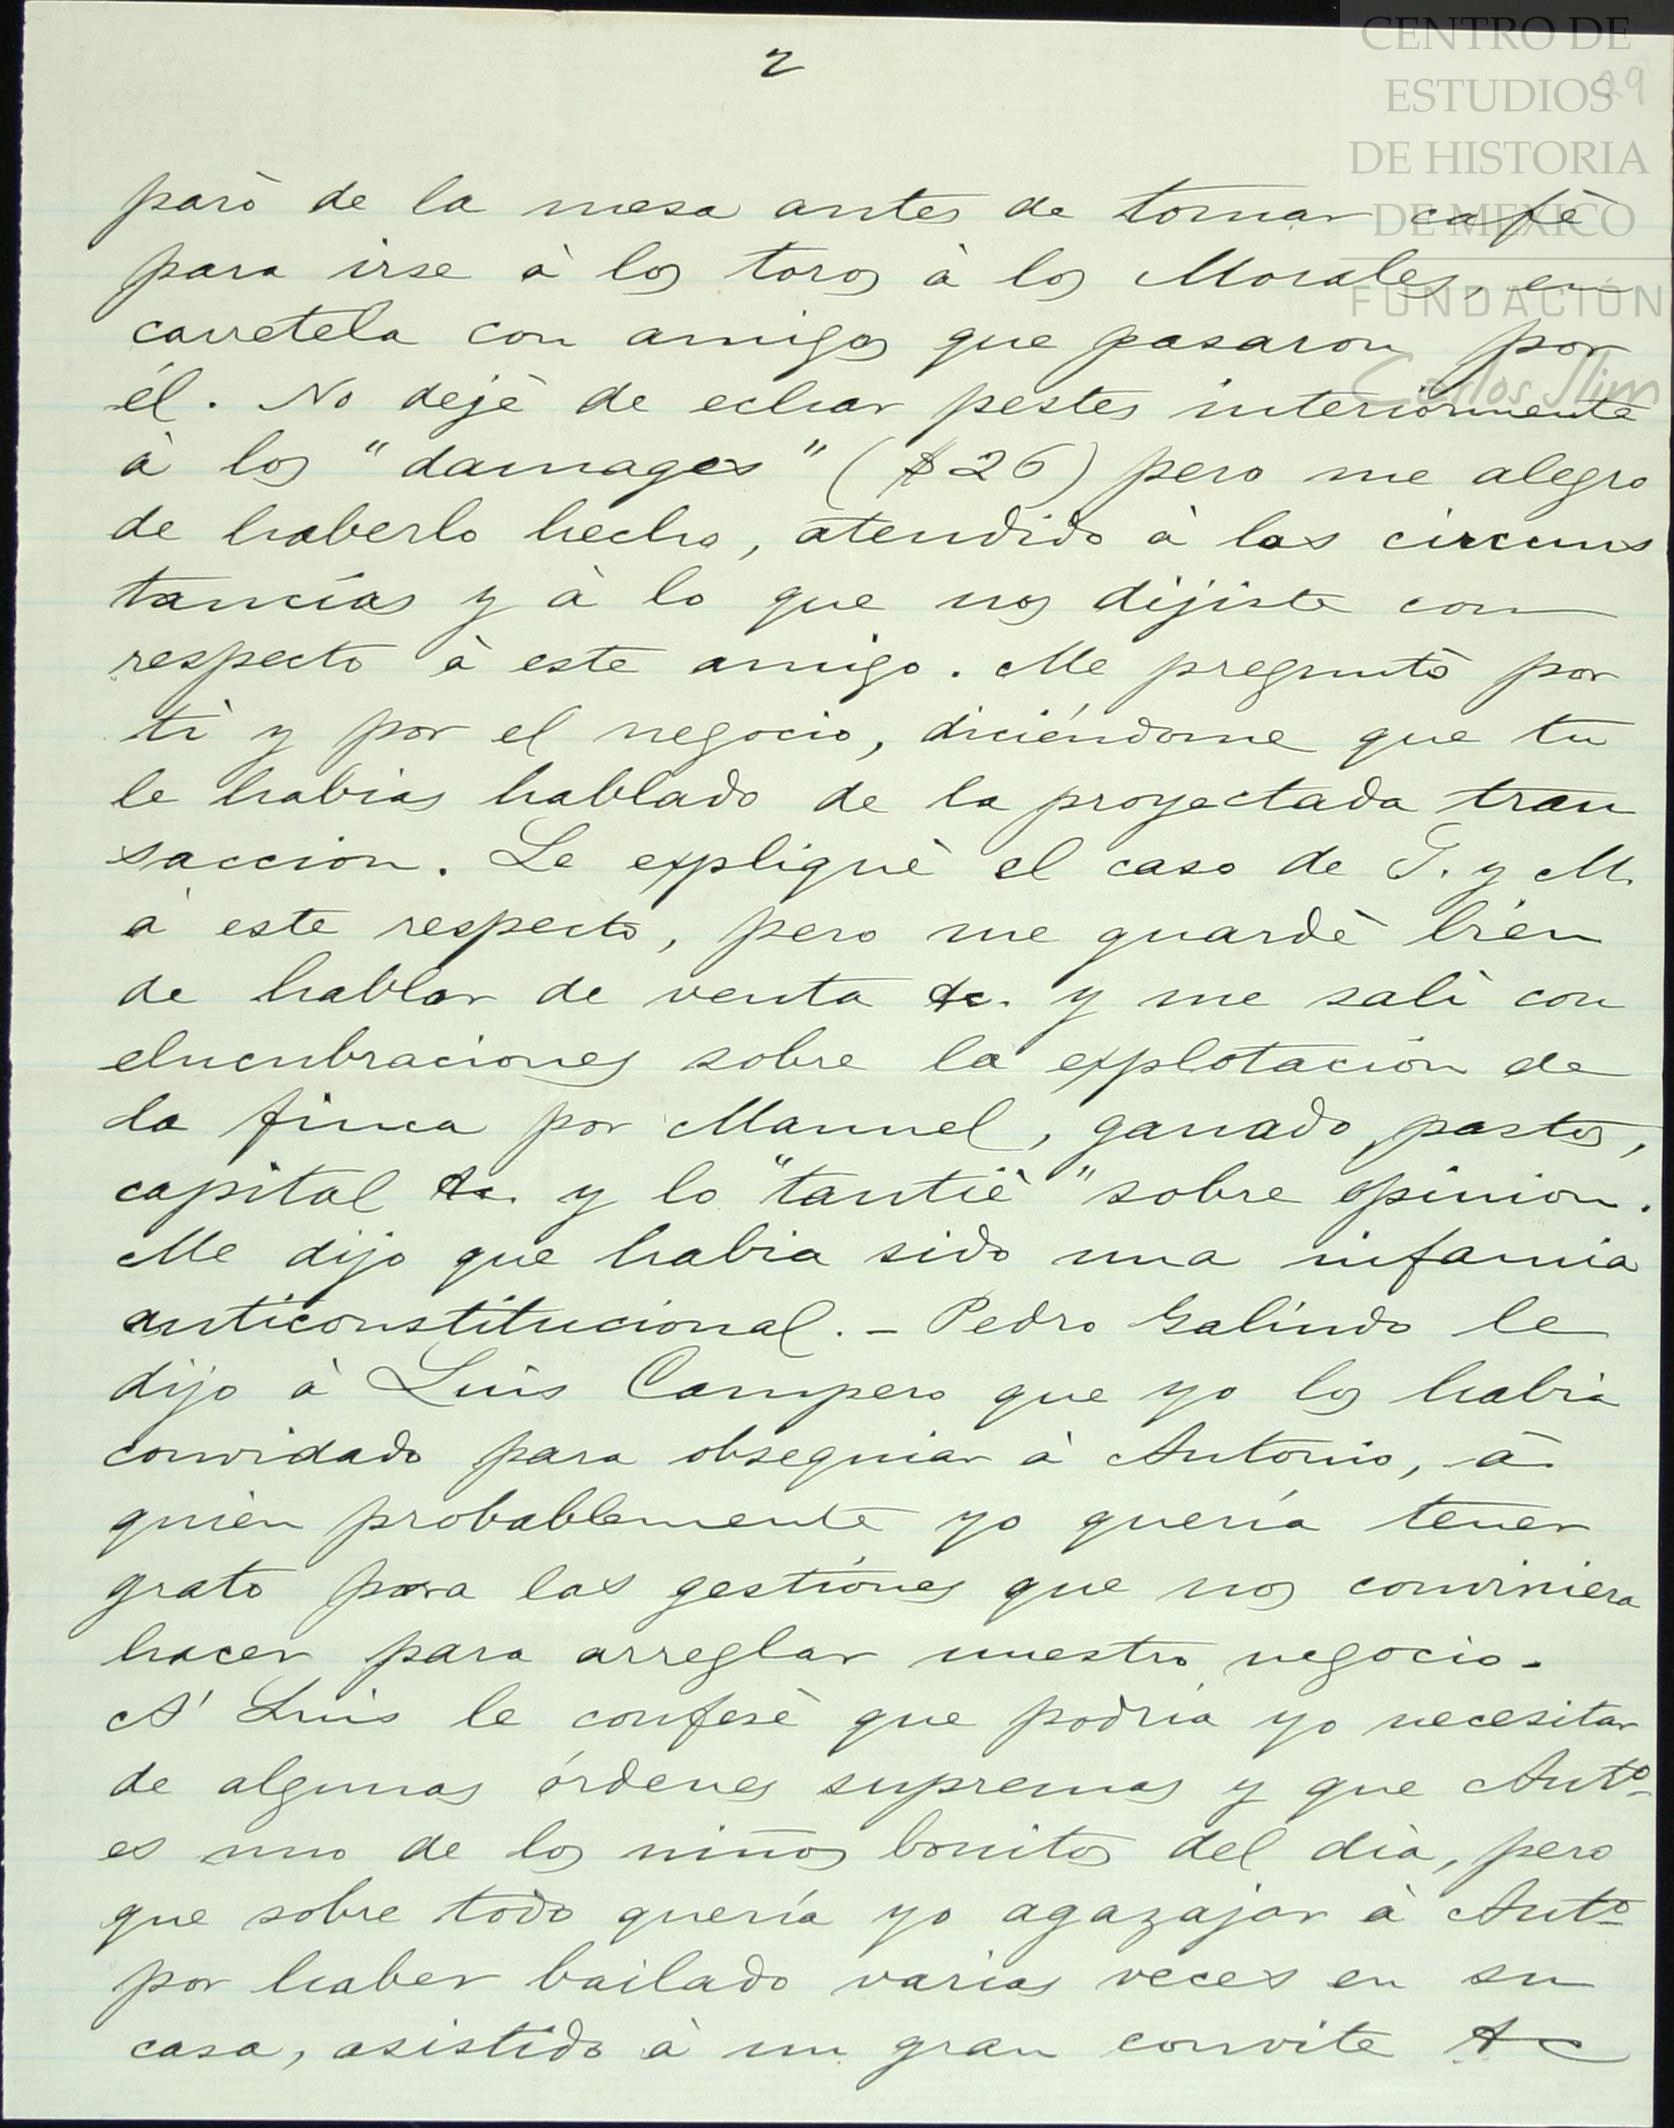 2
CENTRO DE
ESTUDIOS
29
DE HISTORIA
DE MEXICO
FUNDACIÓN
Carlos Slim
parò de la mesa antes de tomar cafè
para irse à los toros à los Morales, en
carretela con amigos que pasaron por
él. No dejè de echar pestes interiormente
à los "damages" ($26) pero me alegro
de haberlo hecho, atendido à las circuns
tancias y à lo que nos dijiste con
respecto à este amigo. Me preguntò por
tì y por el negocio, diciéndome que tu
le habias hablado de la proyectada tran
saccion. Le expliquè el caso de G. y M.
à este respecto, pero me guardè bien
de hablar de venta &c. y me salì con
elucubraciones sobre la explotación de
la finca por Manuel, ganado, pastos,
capital &c. y lo "tantiè" sobre opinion.
Me dijo que habia sido una infamia
anticonstitucional. – Pedro Galindo le
dijo à Luis Campero que yo los habia
convidado para obsequiar à Antonio, à
quièn probablemente yo quería tener
grato para las gestiónes que nos conviniera
hacer para arreglar nuestro negocio.
A' Luis le confesè que podría yo necesitar
de algunas órdenes supremas y que Antº
es uno de los niños bonitos del dìa, pero
que sobre todo quería yo agazajar à Antº
por haber bailado varias veces en su
casa, asistido à un gran convite &c